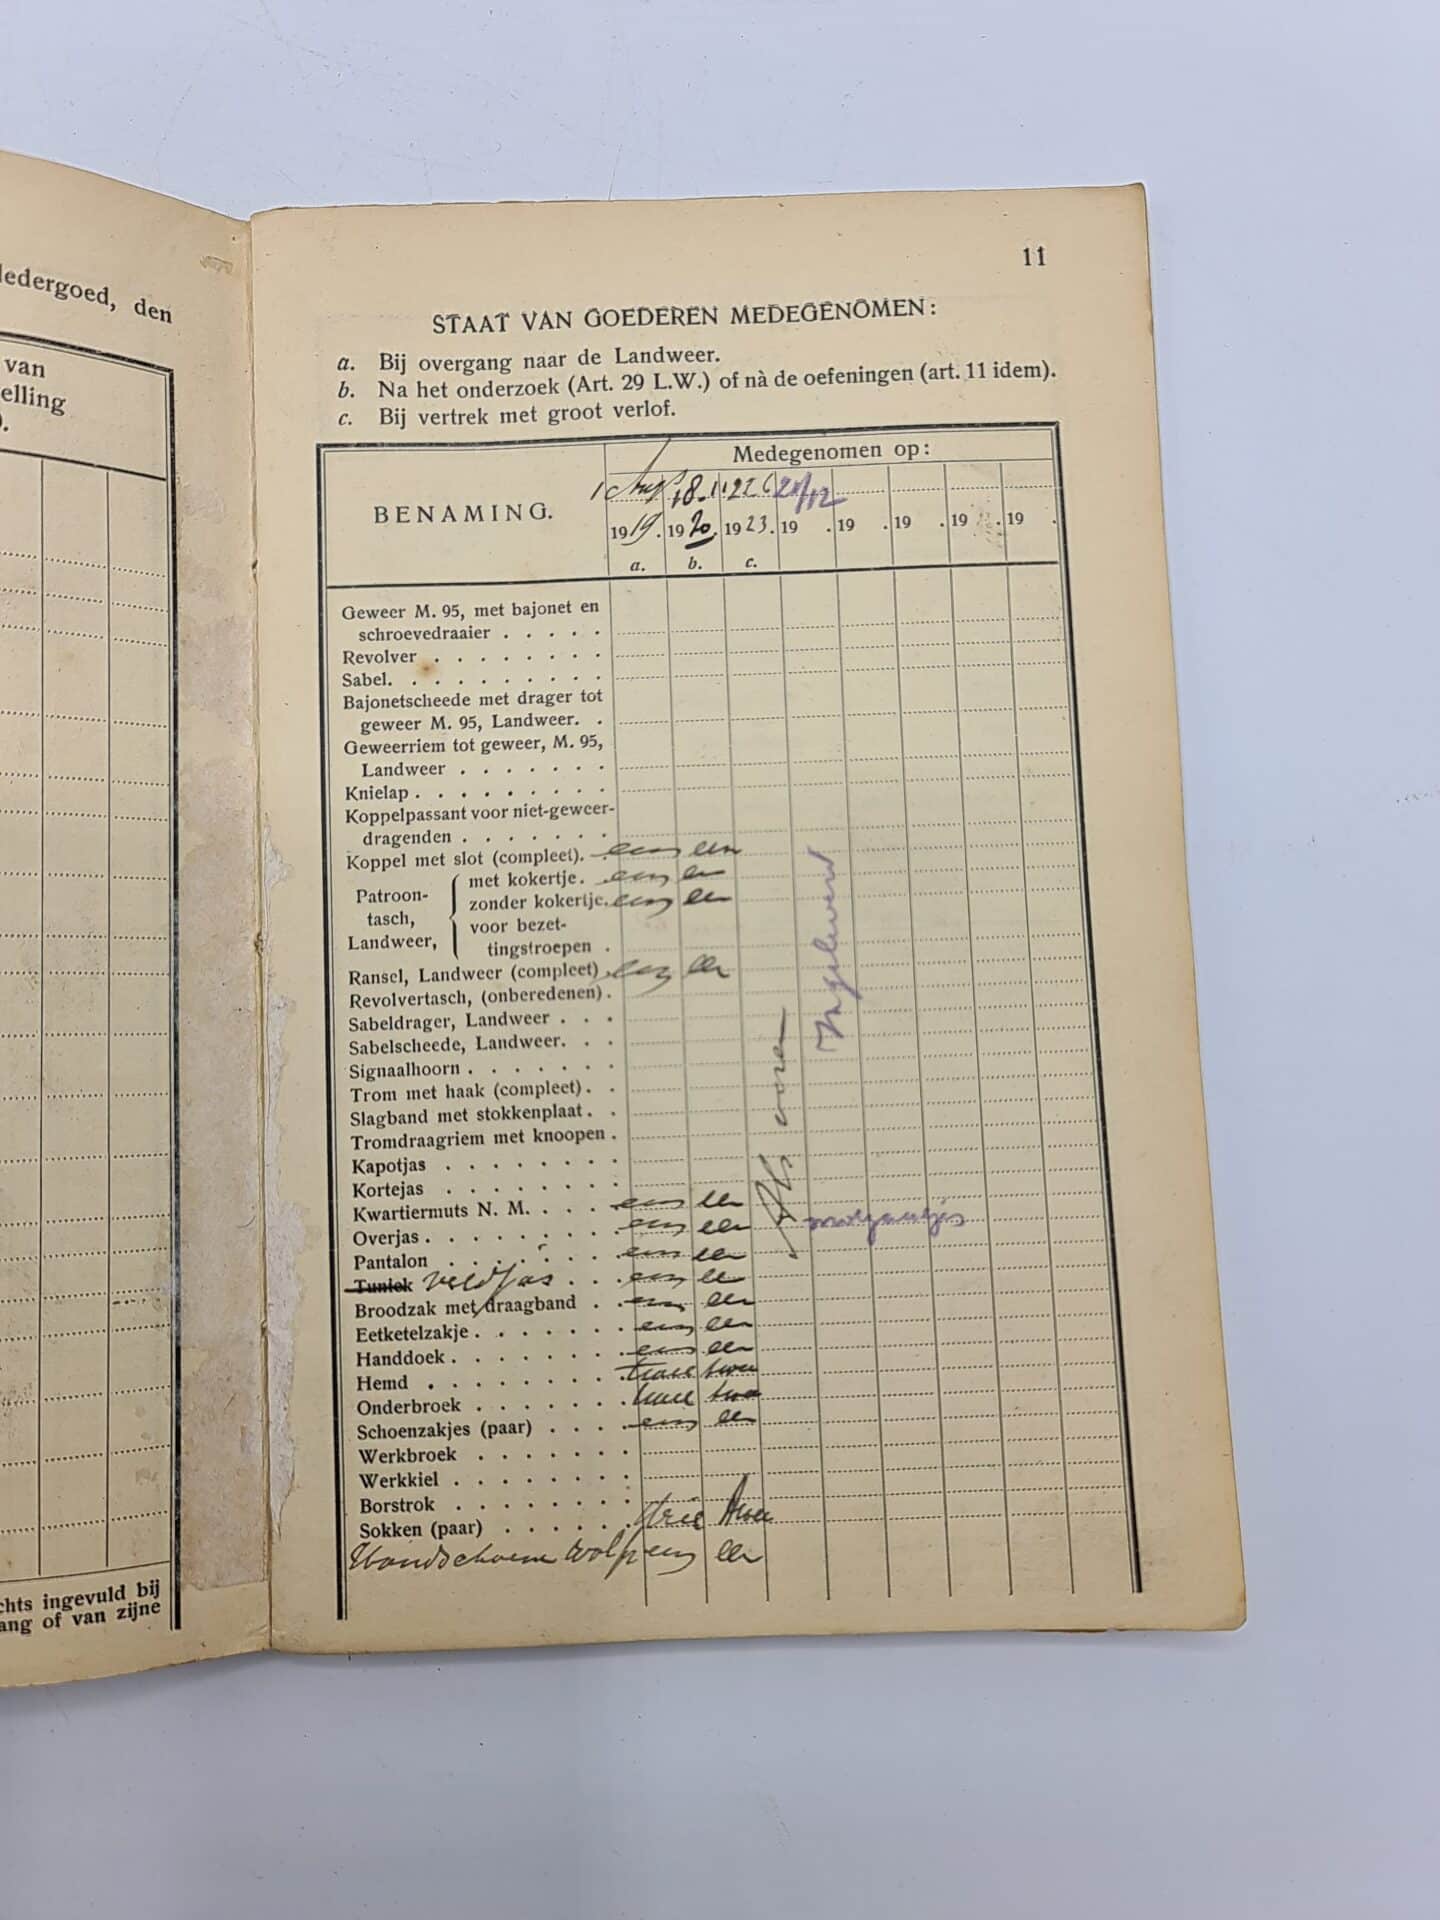 edergoed, den
van
elling
).
chts ingevuld bij
ang of van zijne
11
STAAT VAN GOEDEREN MEDEGENOMEN:
a. Bij overgang naar de Landweer.
b. Na het onderzoek (Art. 29 L.W.) of nà de oefeningen (art. 11 idem).
c. Bij vertrek met groot verlof.
BENAMING.
Medegenomen op:
1 Aug 18.11 22 21/12
1919. 1920. 1923. 19 . 19 . 19 . 19 . 19 .
a. b. c.
Geweer M. 95, met bajonet en
schroevedraaier . . . . .
Revolver . . . . . . . .
Sabel. . . . . . . . . .
Bajonetscheede met drager tot
geweer M. 95, Landweer. .
Geweerriem tot geweer, M. 95,
Landweer . . . . . . .
Knielap . . . . . . . . .
Koppelpassant voor niet-geweer-
dragenden . . . . . . .
Koppel met slot (compleet). een een
Patroon-
tasch,
Landweer,
met kokertje. een een
zonder kokertje. een een
voor bezet-
tingstroepen .
Ransel, Landweer (compleet) . een een
Revolvertasch, (onberedenen) .
Sabeldrager, Landweer . . .
Sabelscheede, Landweer. . .
Signaalhoorn . . . . . . .
Trom met haak (compleet) . .
Slagband met stokkenplaat . .
Tromdraagriem met knoopen .
Kapotjas . . . . . . . .
Kortejas . . . . . . . .
Kwartiermuts N. M. . . . een een
Overjas . . . . . . . . een een
Pantalon . . . . . . . een een
Tuniek veldjas . . een een
Broodzak met draagband . . een een
Eetketelzakje . . . . . . een een
Handdoek . . . . . . . een een
Hemd . . . . . . . . twee twee
Onderbroek . . . . . . . twee twee
Schoenzakjes (paar) . . . . een een
Werkbroek . . . . . . .
Werkkiel . . . . . . . .
Borstrok . . . . . . . .
Sokken (paar) . . . . . . drie twee
Handschoenen wol p een een
Als voren
Ingeleverd